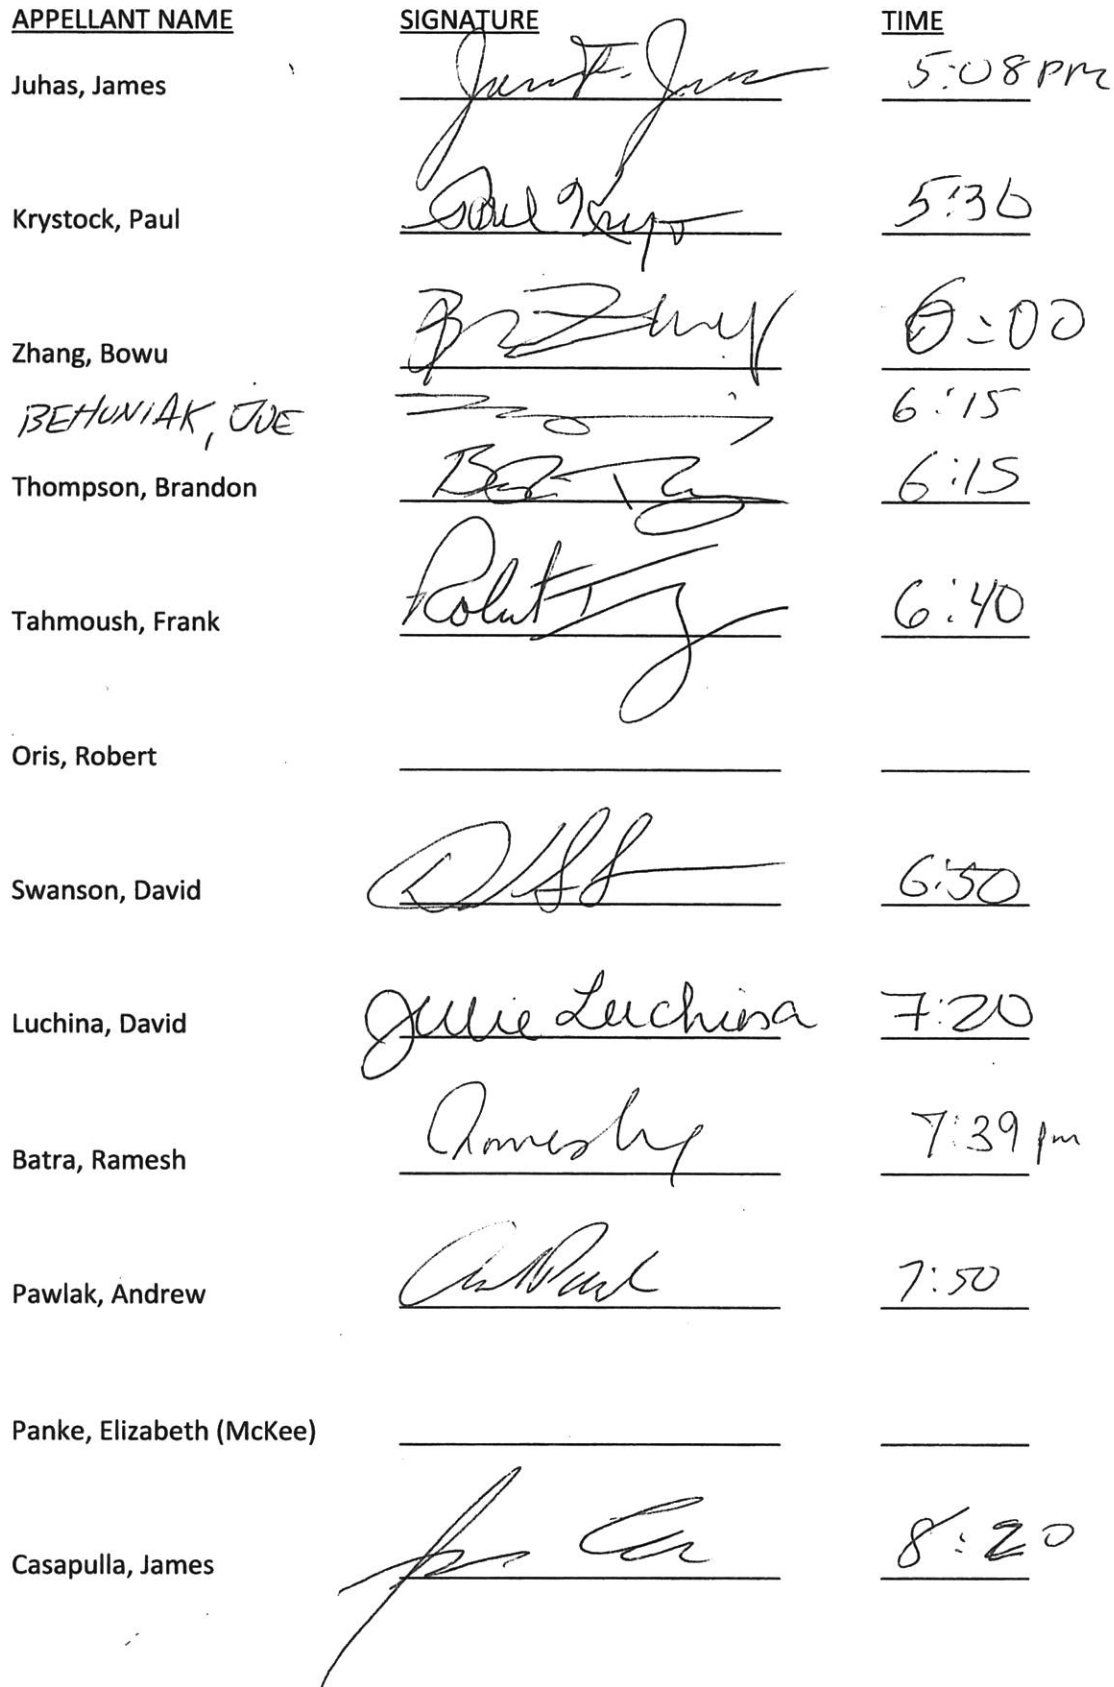 APPELLANT NAME SIGNATURE TIME
Juhas, James 5:08 pm
Krystock, Paul 5:36
Zhang, Bowu 6:00
BEHUNIAK, JOE 6:15
Thompson, Brandon 6:15
Tahmoush, Frank 6:40
Oris, Robert
Swanson, David 6:50
Luchina, David Julie Luchina 7:20
Batra, Ramesh 7:39 pm
Pawlak, Andrew 7:50
Panke, Elizabeth (McKee)
Casapulla, James 8:20